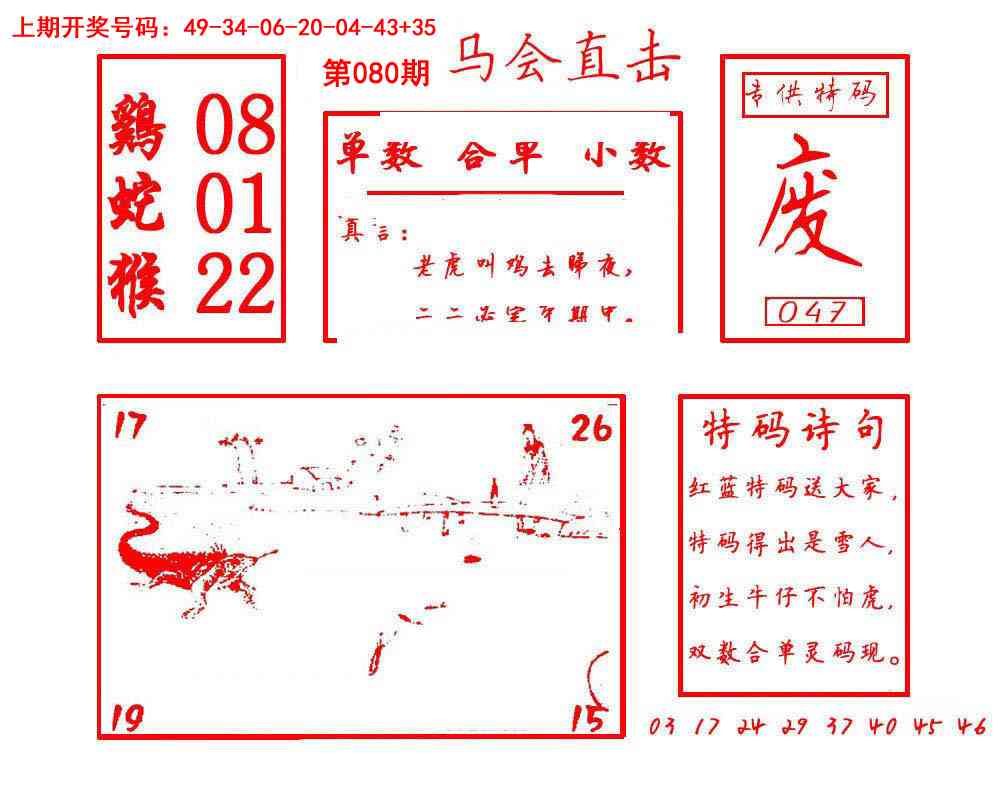 上期开奖号码：49-34-06-20-04-43+35
第080期 马会直击
鷄 08
蛇 01
猴 22
单数 合单 小数
真言：
老虎叫鸡去睇夜，
二二必定在期中。
专供特码
废
047
17
26
19
15
特码诗句
红蓝特码送大家，
特码得出是雪人，
初生牛仔不怕虎，
双数合单灵码现。
03 17 24 29 37 40 45 46